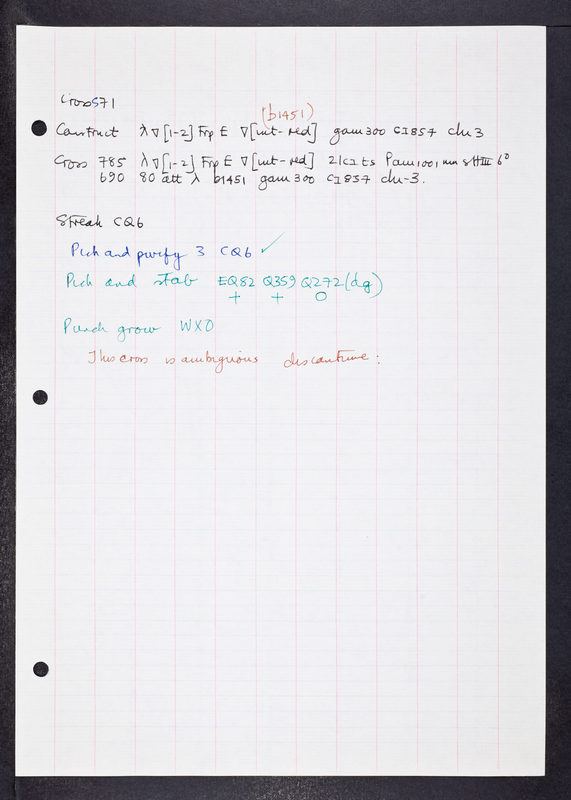 Cross 571
(b1451)
Construct λ ∇[1-2] Frp E ∇[int-red] gam300 cI857 chi3
Cross 785 λ ∇[1-2] Frp E ∇[int-red] 21 cI ts Pam1001 nin sHIII 6°
690 80 att λ b1451 gam300 cI857 chi-3.
Streak CQ6
Pick and purify 3 CQ6 ✓
Pick and stab EQ82 Q359 Q272(dg)
+ + O
grow WXO
This cross is ambiguous discontinue: